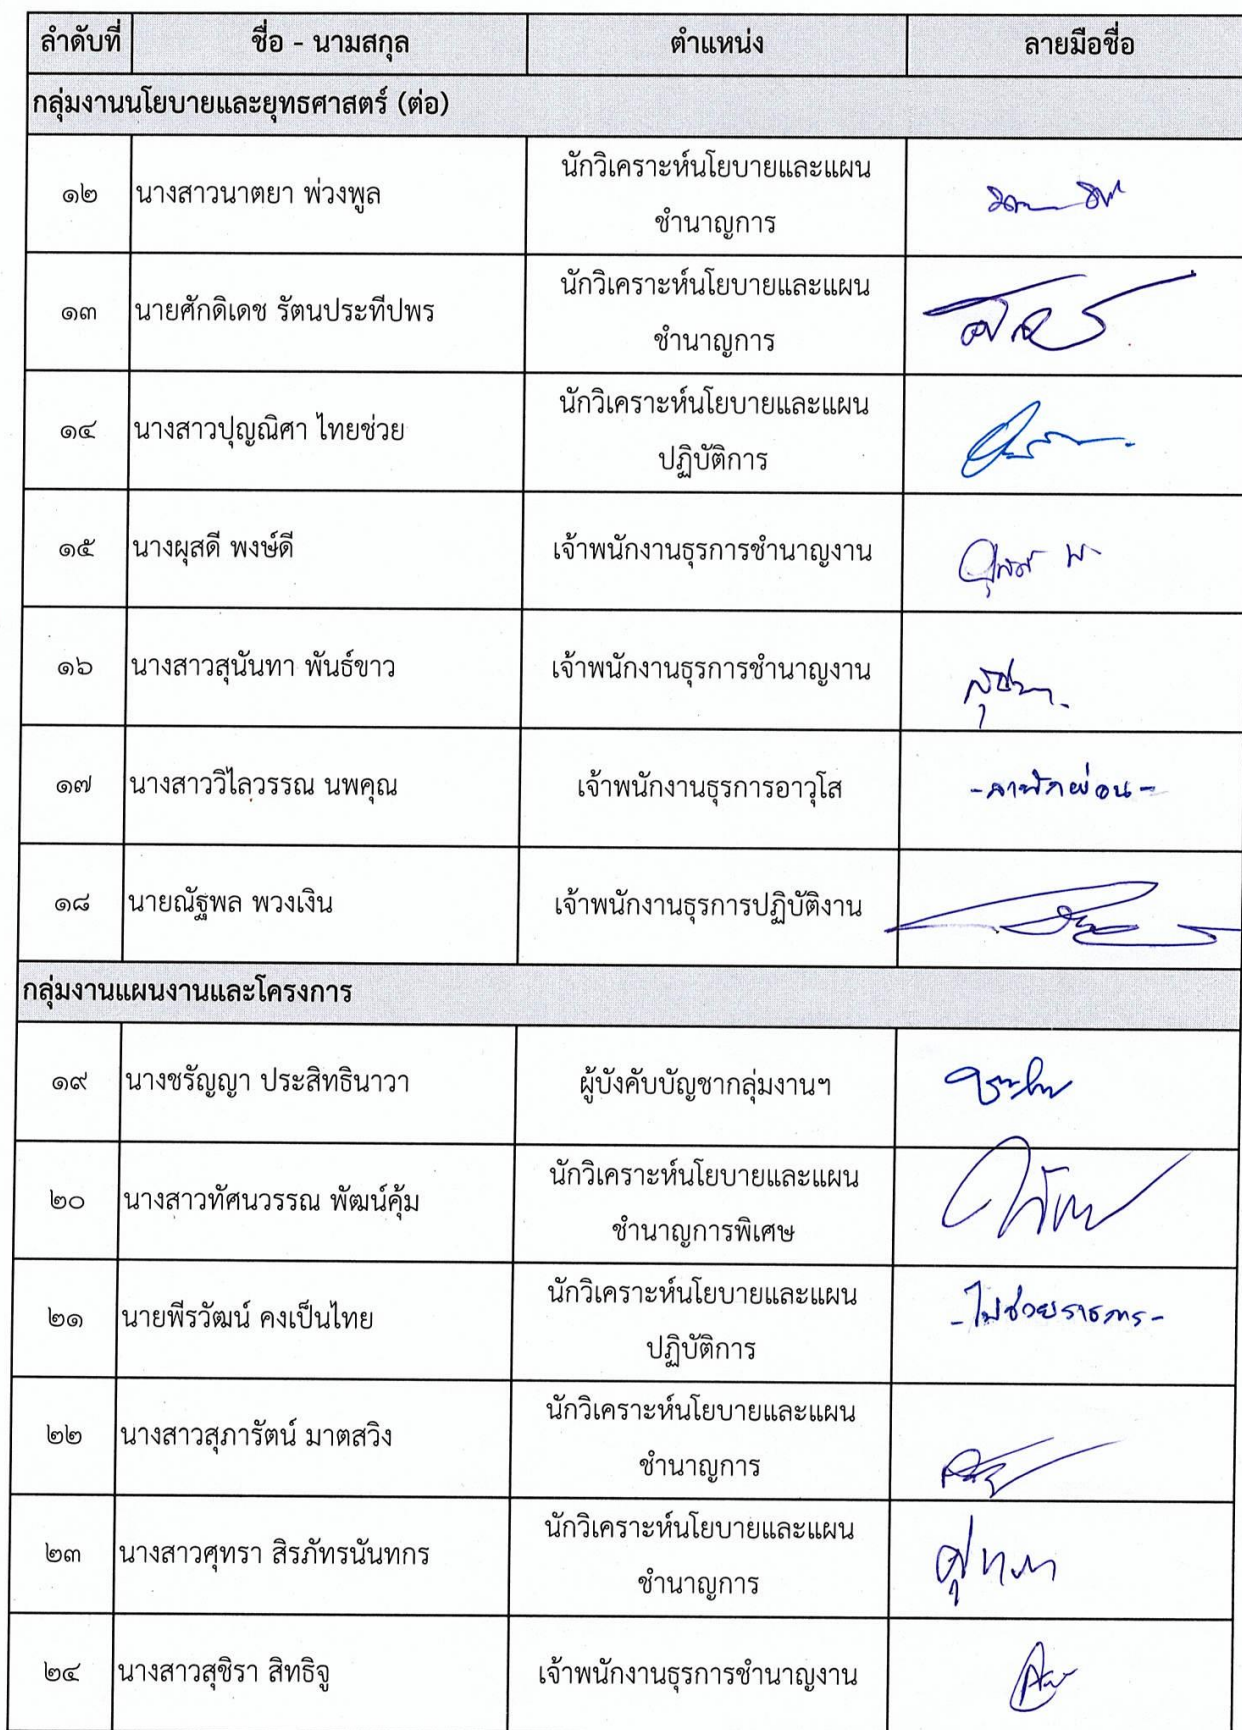 ลำดับที่ ชื่อ - นามสกุล ตำแหน่ง ลายมือชื่อ
กลุ่มงานนโยบายและยุทธศาสตร์ (ต่อ)
๑๒ นางสาวนาตยา พ่วงพูล นักวิเคราะห์นโยบายและแผน
ชำนาญการ
๑๓ นายศักดิเดช รัตนประทีปพร นักวิเคราะห์นโยบายและแผน
ชำนาญการ
๑๔ นางสาวปุญณิศา ไทยช่วย นักวิเคราะห์นโยบายและแผน
ปฏิบัติการ
๑๕ นางผุสดี พงษ์ดี เจ้าพนักงานธุรการชำนาญงาน
๑๖ นางสาวสุนันทา พันธ์ขาว เจ้าพนักงานธุรการชำนาญงาน
๑๗ นางสาววิไลวรรณ นพคุณ เจ้าพนักงานธุรการอาวุโส -ลาพักผ่อน-
๑๘ นายณัฐพล พวงเงิน เจ้าพนักงานธุรการปฏิบัติงาน
กลุ่มงานแผนงานและโครงการ
๑๙ นางชรัญญา ประสิทธินาวา ผู้บังคับบัญชากลุ่มงานฯ
๒๐ นางสาวทัศนวรรณ พัฒน์คุ้ม นักวิเคราะห์นโยบายและแผน
ชำนาญการพิเศษ
๒๑ นายพีรวัฒน์ คงเป็นไทย นักวิเคราะห์นโยบายและแผน -ไปช่วยราชการ-
ปฏิบัติการ
๒๒ นางสาวสุภารัตน์ มาตสวิง นักวิเคราะห์นโยบายและแผน
ชำนาญการ
๒๓ นางสาวศุทรา สิรภัทรนันทกร นักวิเคราะห์นโยบายและแผน
ชำนาญการ
๒๔ นางสาวสุชิรา สิทธิจู เจ้าพนักงานธุรการชำนาญงาน